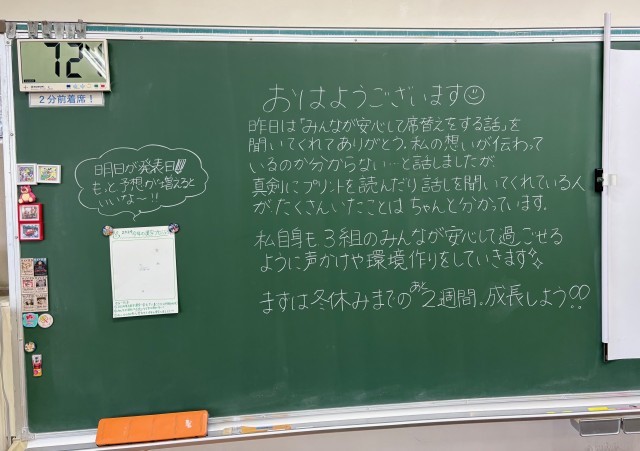 72
2分前着席！
おはようございます
昨日は「みんなが安心して席替えをする話」を
聞いてくれてありがとう。私の想いが伝わって
いるのか分からない…と話しましたが
真剣にプリントを読んだり話を聞いてくれている人
がたくさんいたことはちゃんと分かっています。
私自身も3組のみんなが安心して過ごせる
ように声かけや環境作りをしていきます
まずは冬休みまでのあと2週間、成長しよう!!
明日が発表日!!
もっと予想が増えると
いいな〜!!